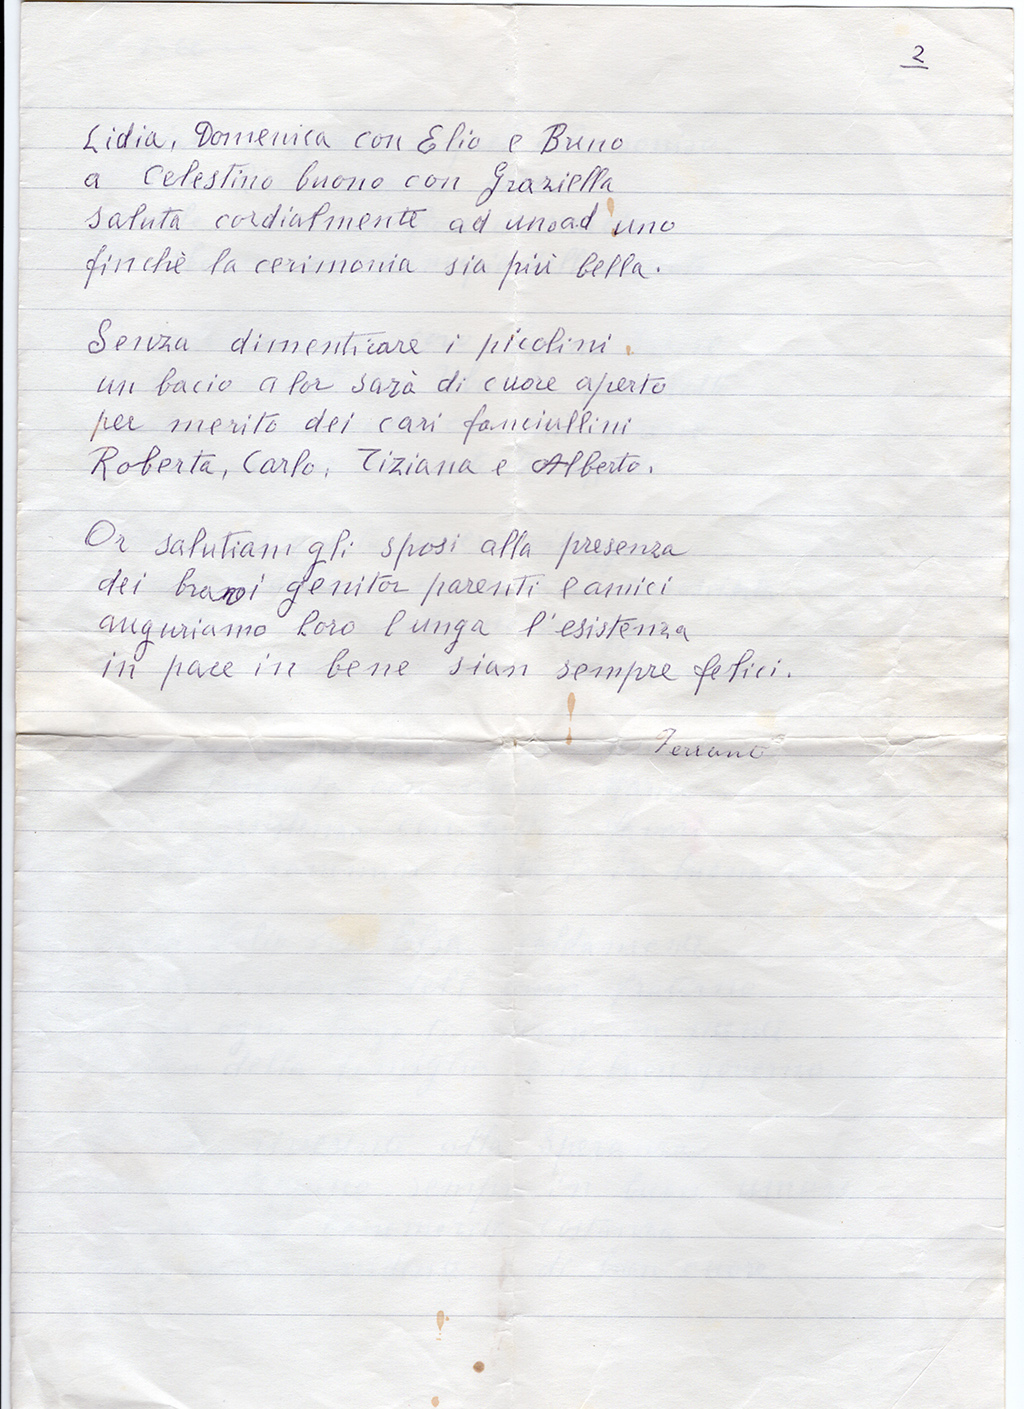 2
Lidia, Domenica con Elio e Bruno
a Celestino buono con Graziella
saluta cordialmente ad uno ad uno
finchè la cerimonia sia più bella.
Senza dimenticare i picolini
un bacio a lor sarà di cuore aperto
per merito dei cari fanciullini
Roberta, Carlo, Tiziana e Alberto.
Or salutiam gli sposi alla presenza
dei bravi genitor parenti e amici
auguriamo loro lunga l'esistenza
in pace in bene sian sempre felici.